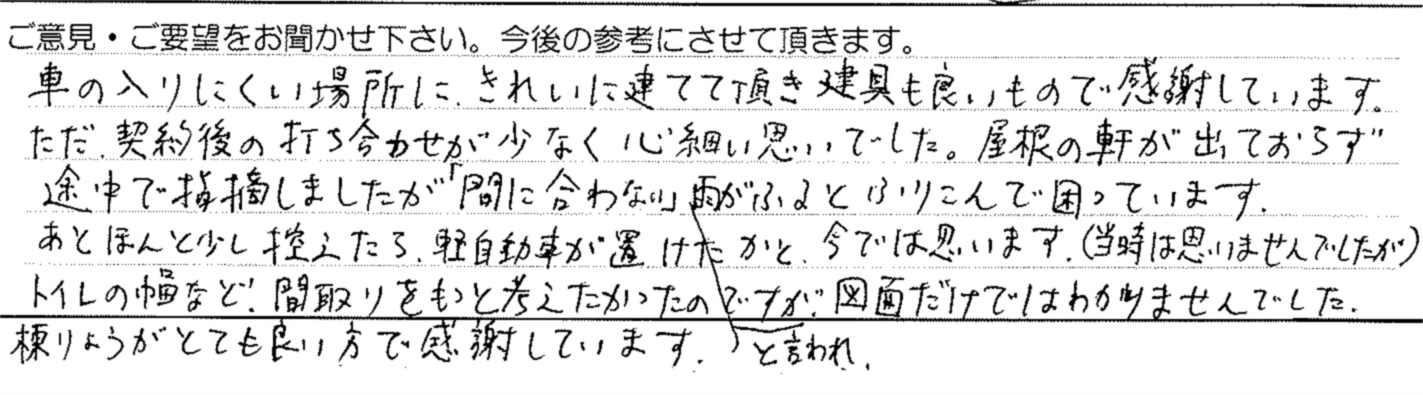 ご意見・ご要望をお聞かせ下さい。今後の参考にさせて頂きます。
車の入りにくい場所に、きれいに建てて頂き建具も良いもので感謝しています。
ただ、契約後の打ち合わせが少なく心細い思いでした。屋根の軒が出ておらず
途中で指摘しましたが「間に合わない」雨がふるとふりこんで困っています。
あとほんと少し控えたら、軽自動車が置けたかと、今では思います。(当時は思いませんでしたが)
トイレの幅など、間取りをもっと考えたかったのですが、図面だけではわかりませんでした。
棟りょうがとても良い方で感謝しています。
と言われ、